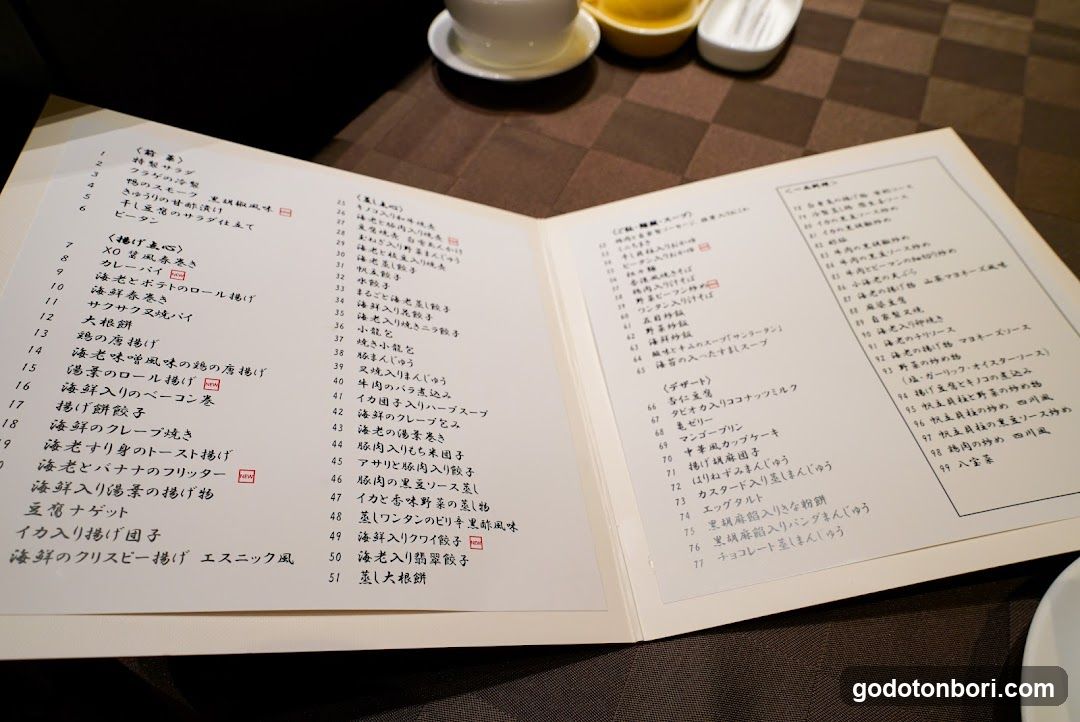 〈前菜〉
1 特製サラダ
2 クラゲの冷製
3 鴨のスモーク 黒胡椒風味
4 きゅうりの甘酢漬け
5 干し豆腐のサラダ仕立て
6 ピータン
〈揚げ点心〉
7 XO醤風春巻き
8 カレーパイ NEW
9 海老とポテトのロール揚げ
10 海鮮春巻き
11 サクサク叉焼パイ
12 大根餅
13 鶏の唐揚げ
14 海老味噌風味の鶏の唐揚げ
15 湯葉のロール揚げ NEW
16 海鮮入りのベーコン巻
17 揚げ餅餃子
18 海鮮のクレープ焼き
海老すり身のトースト揚げ
海老とバナナのフリッター NEW
海鮮入り湯葉の揚げ物
豆腐ナゲット
イカ入り揚げ団子
海鮮のクリスピー揚げ エスニック風
〈蒸し点心〉
25 キノコ入り和牛焼売
26 海老と豚肉入り焼売
27 豆腐焼売
28 玉ねぎ入り野菜まんじゅう
29 海老と枝豆入り焼売
30 海老蒸し餃子
31 帆立餃子
32 水餃子
33 まるごと海老蒸し餃子
34 海鮮入り
35 海老入り焼きニラ餃子
36 小籠包
37 焼き小籠包
38 豚まんじゅう
39 叉焼入りまんじゅう
40 牛肉のバラ煮込み
41 イカ団子入りハーブスープ
42 海鮮のクレープ包み
43 海老の湯葉巻き
44 豚肉入りもち米団子
45 アサリと豚肉入り餃子
46 豚肉の黒豆ソース蒸し
47 イカと香味野菜の蒸し物
48 蒸しワンタンのピリ辛黒酢風味
49 海鮮入りクワイ餃子 NEW
50 海老入り翡翠餃子
51 蒸し大根餅
〈ご飯・麺類・スープ〉
53 ちまき
干し貝柱入りおかゆ
ピータン入りおかゆ
香港風焼きそば
香肉入り汁そば
野菜ビーフン炒め
ワンタン入り汁そば
61 五目炒飯
62 野菜炒飯
63 海鮮炒飯
64 酸味とキムのスープ「サンラータン」
65 海苔の入ったすましスープ
〈デザート〉
66 杏仁豆腐
67 タピオカ入りココナッツミルク
68 亀ゼリー
69 マンゴープリン
70 中華風カップケーキ
71 揚げ胡麻団子
72 はりねずみまんじゅう
73 カスタード入り蒸しまんじゅう
74 エッグタルト
75 黒胡麻餡入りきな粉餅
76 黒胡麻餡入りパンダまんじゅう
77 チョコレート蒸しまんじゅう
〈一品料理〉
イカの黒豆ソース炒め
イカの黒胡椒炒め
酢豚
牛肉の黒胡椒炒め
牛肉の黒豆ソース炒め
牛肉とピーマンの細切り炒め
小海老の天ぷら
海老の揚げ物 山葵マヨネーズ風味
麻婆豆腐
自家製叉焼
90 海老入り卵焼き
91 海老のチリソース
92 海老の揚げ物 マヨネーズソース
93 野菜の炒め物
(塩・ガーリック・オイスターソース)
94 揚げ豆腐とキノコの煮込み
95 帆立貝柱と野菜の炒め物
96 帆立貝柱の炒め 四川風
97 帆立貝柱の黒豆ソース炒め
98 鶏肉の炒め 四川風
99 八宝菜
godotonbori.com